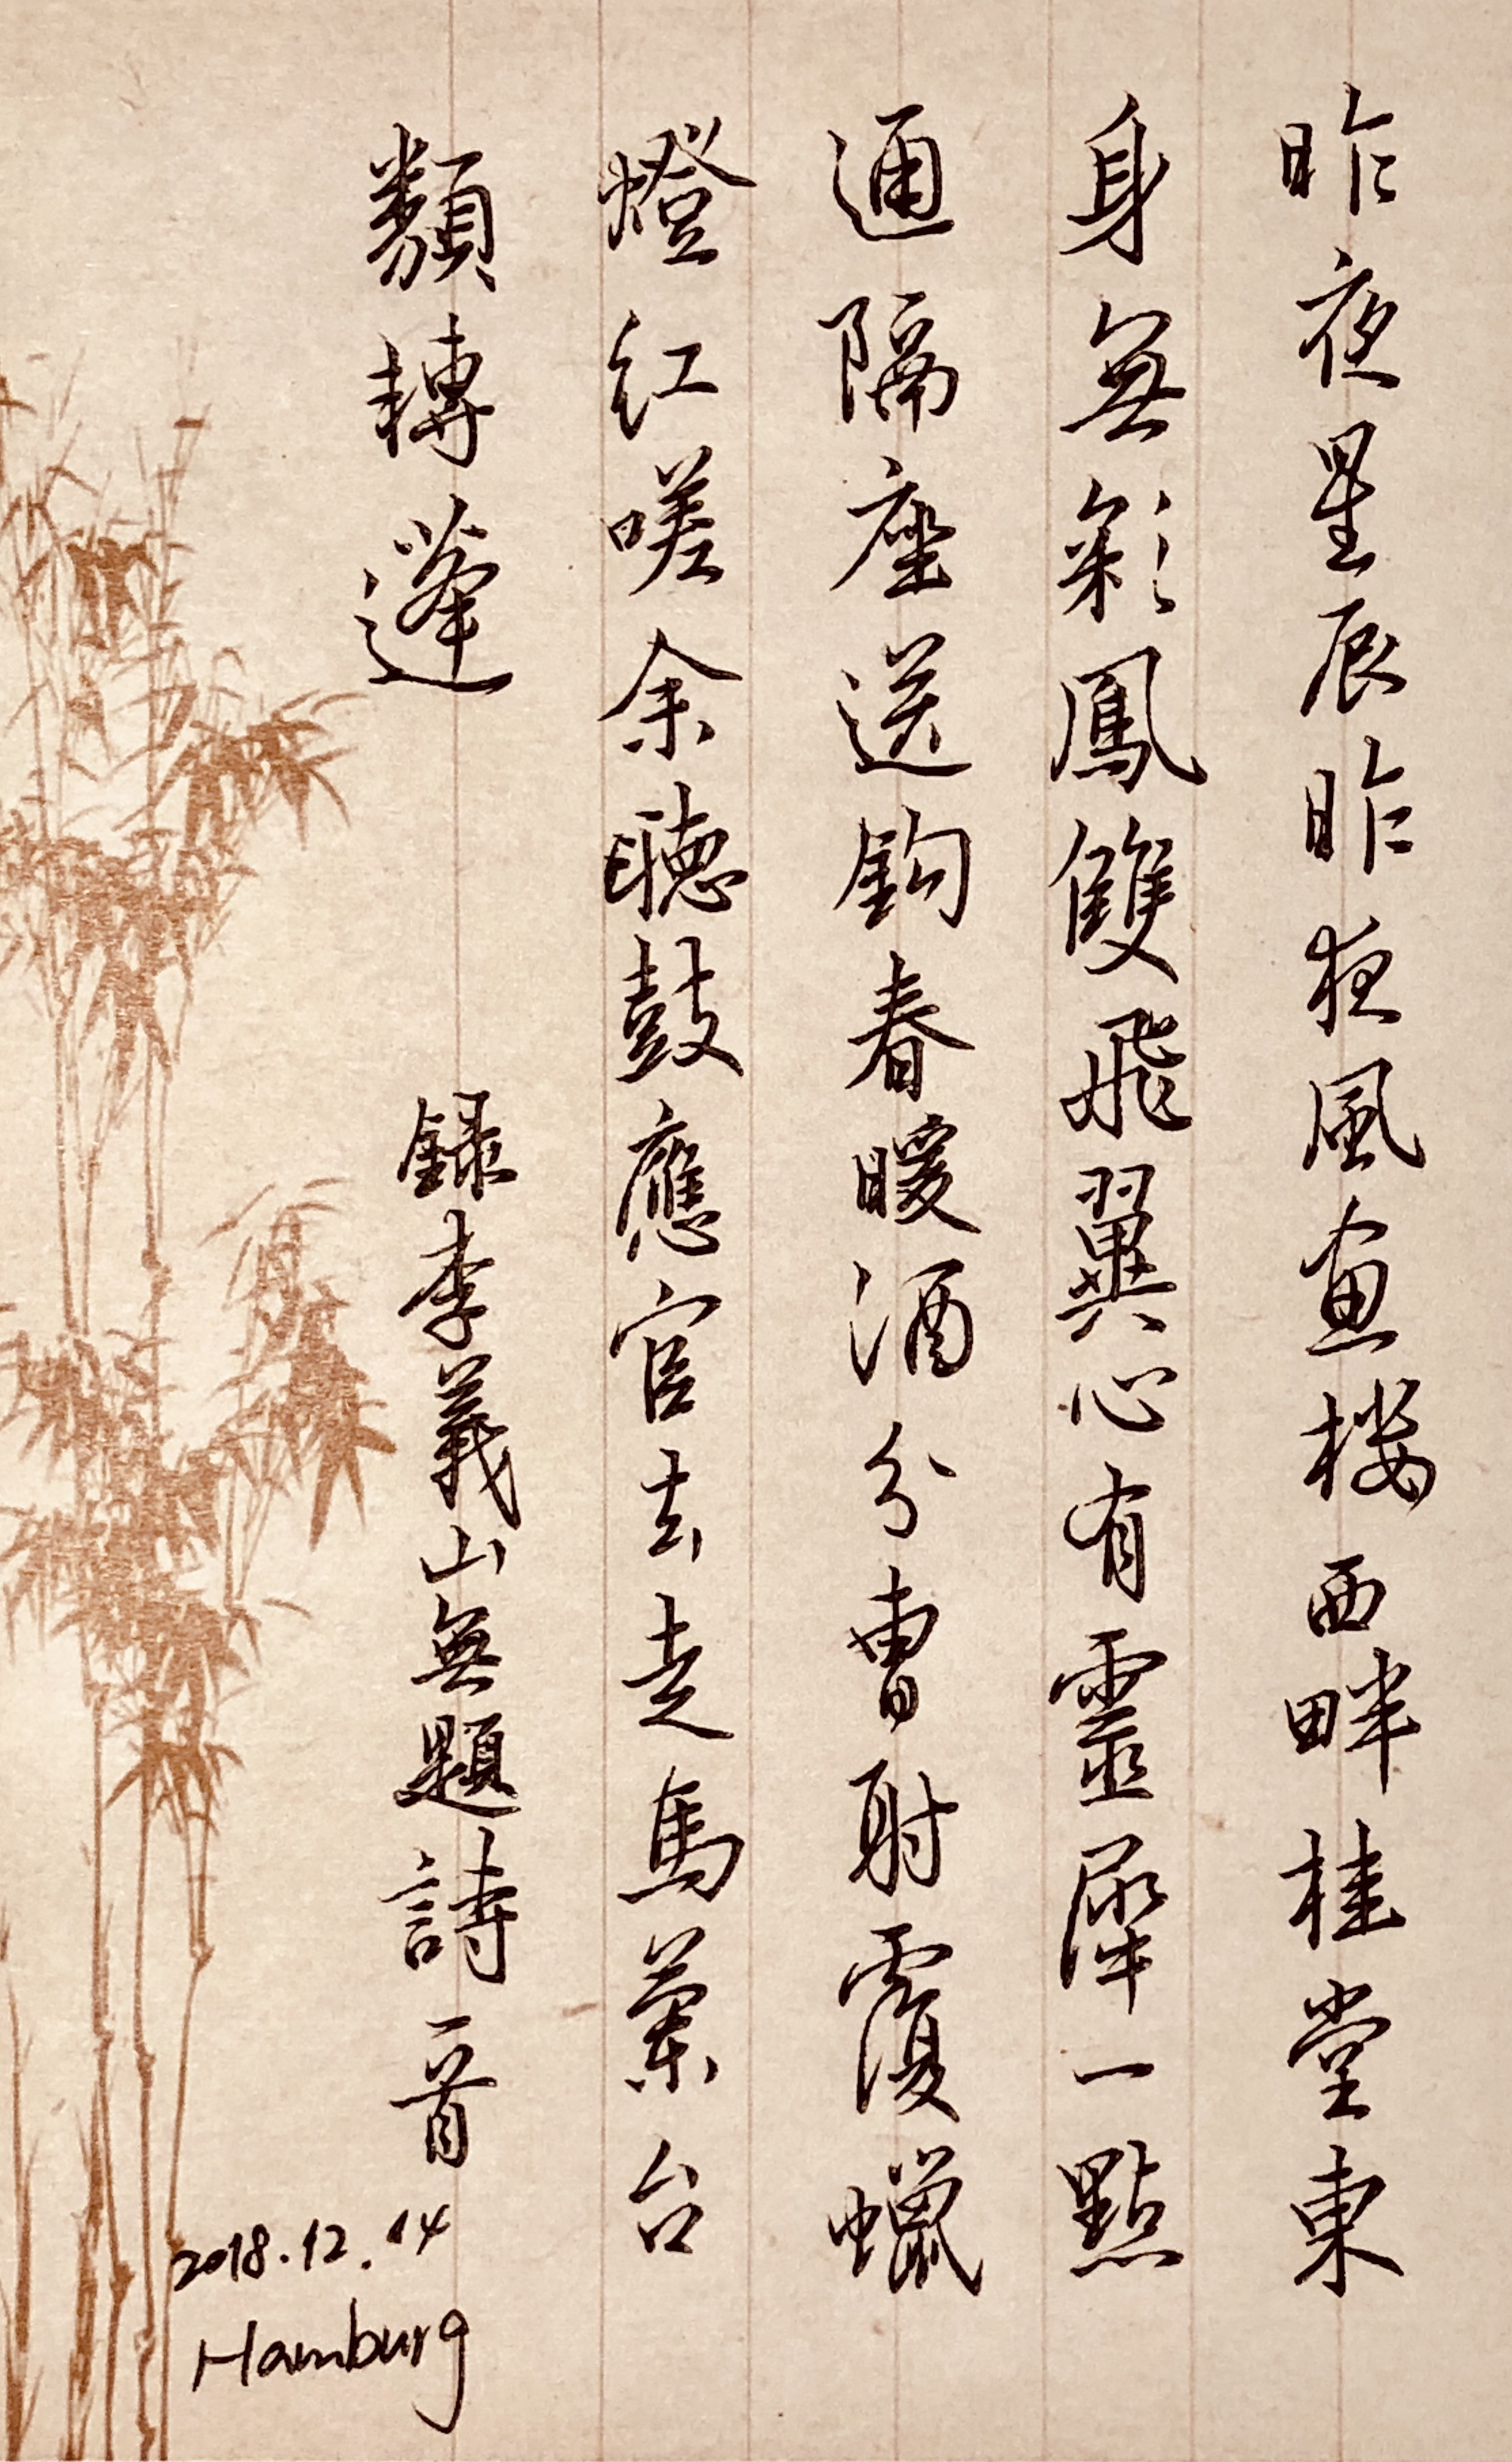 昨夜星辰昨夜風畫樓西畔桂堂東
身無彩鳳雙飛翼心有靈犀一點
通隔座送鈎春暖酒分曹射覆蠟
燈紅嗟余聽鼓應官去走馬蘭台
類轉蓬
録李義山無題詩一首
2018.12.14
Hamburg